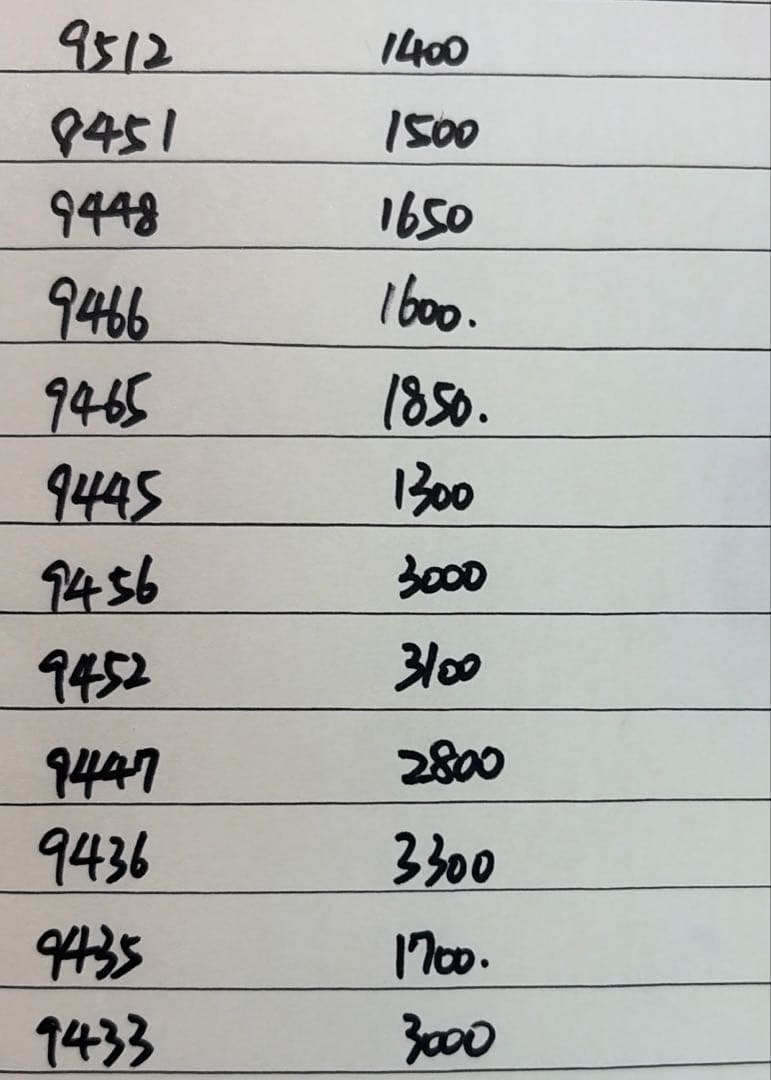 9512 1400
8451 1500
9448 1650
9466 1600.
9465 1850.
9445 1300
9456 3000
9452 3100
9447 2800
9436 3300
9435 1700.
9433 3000